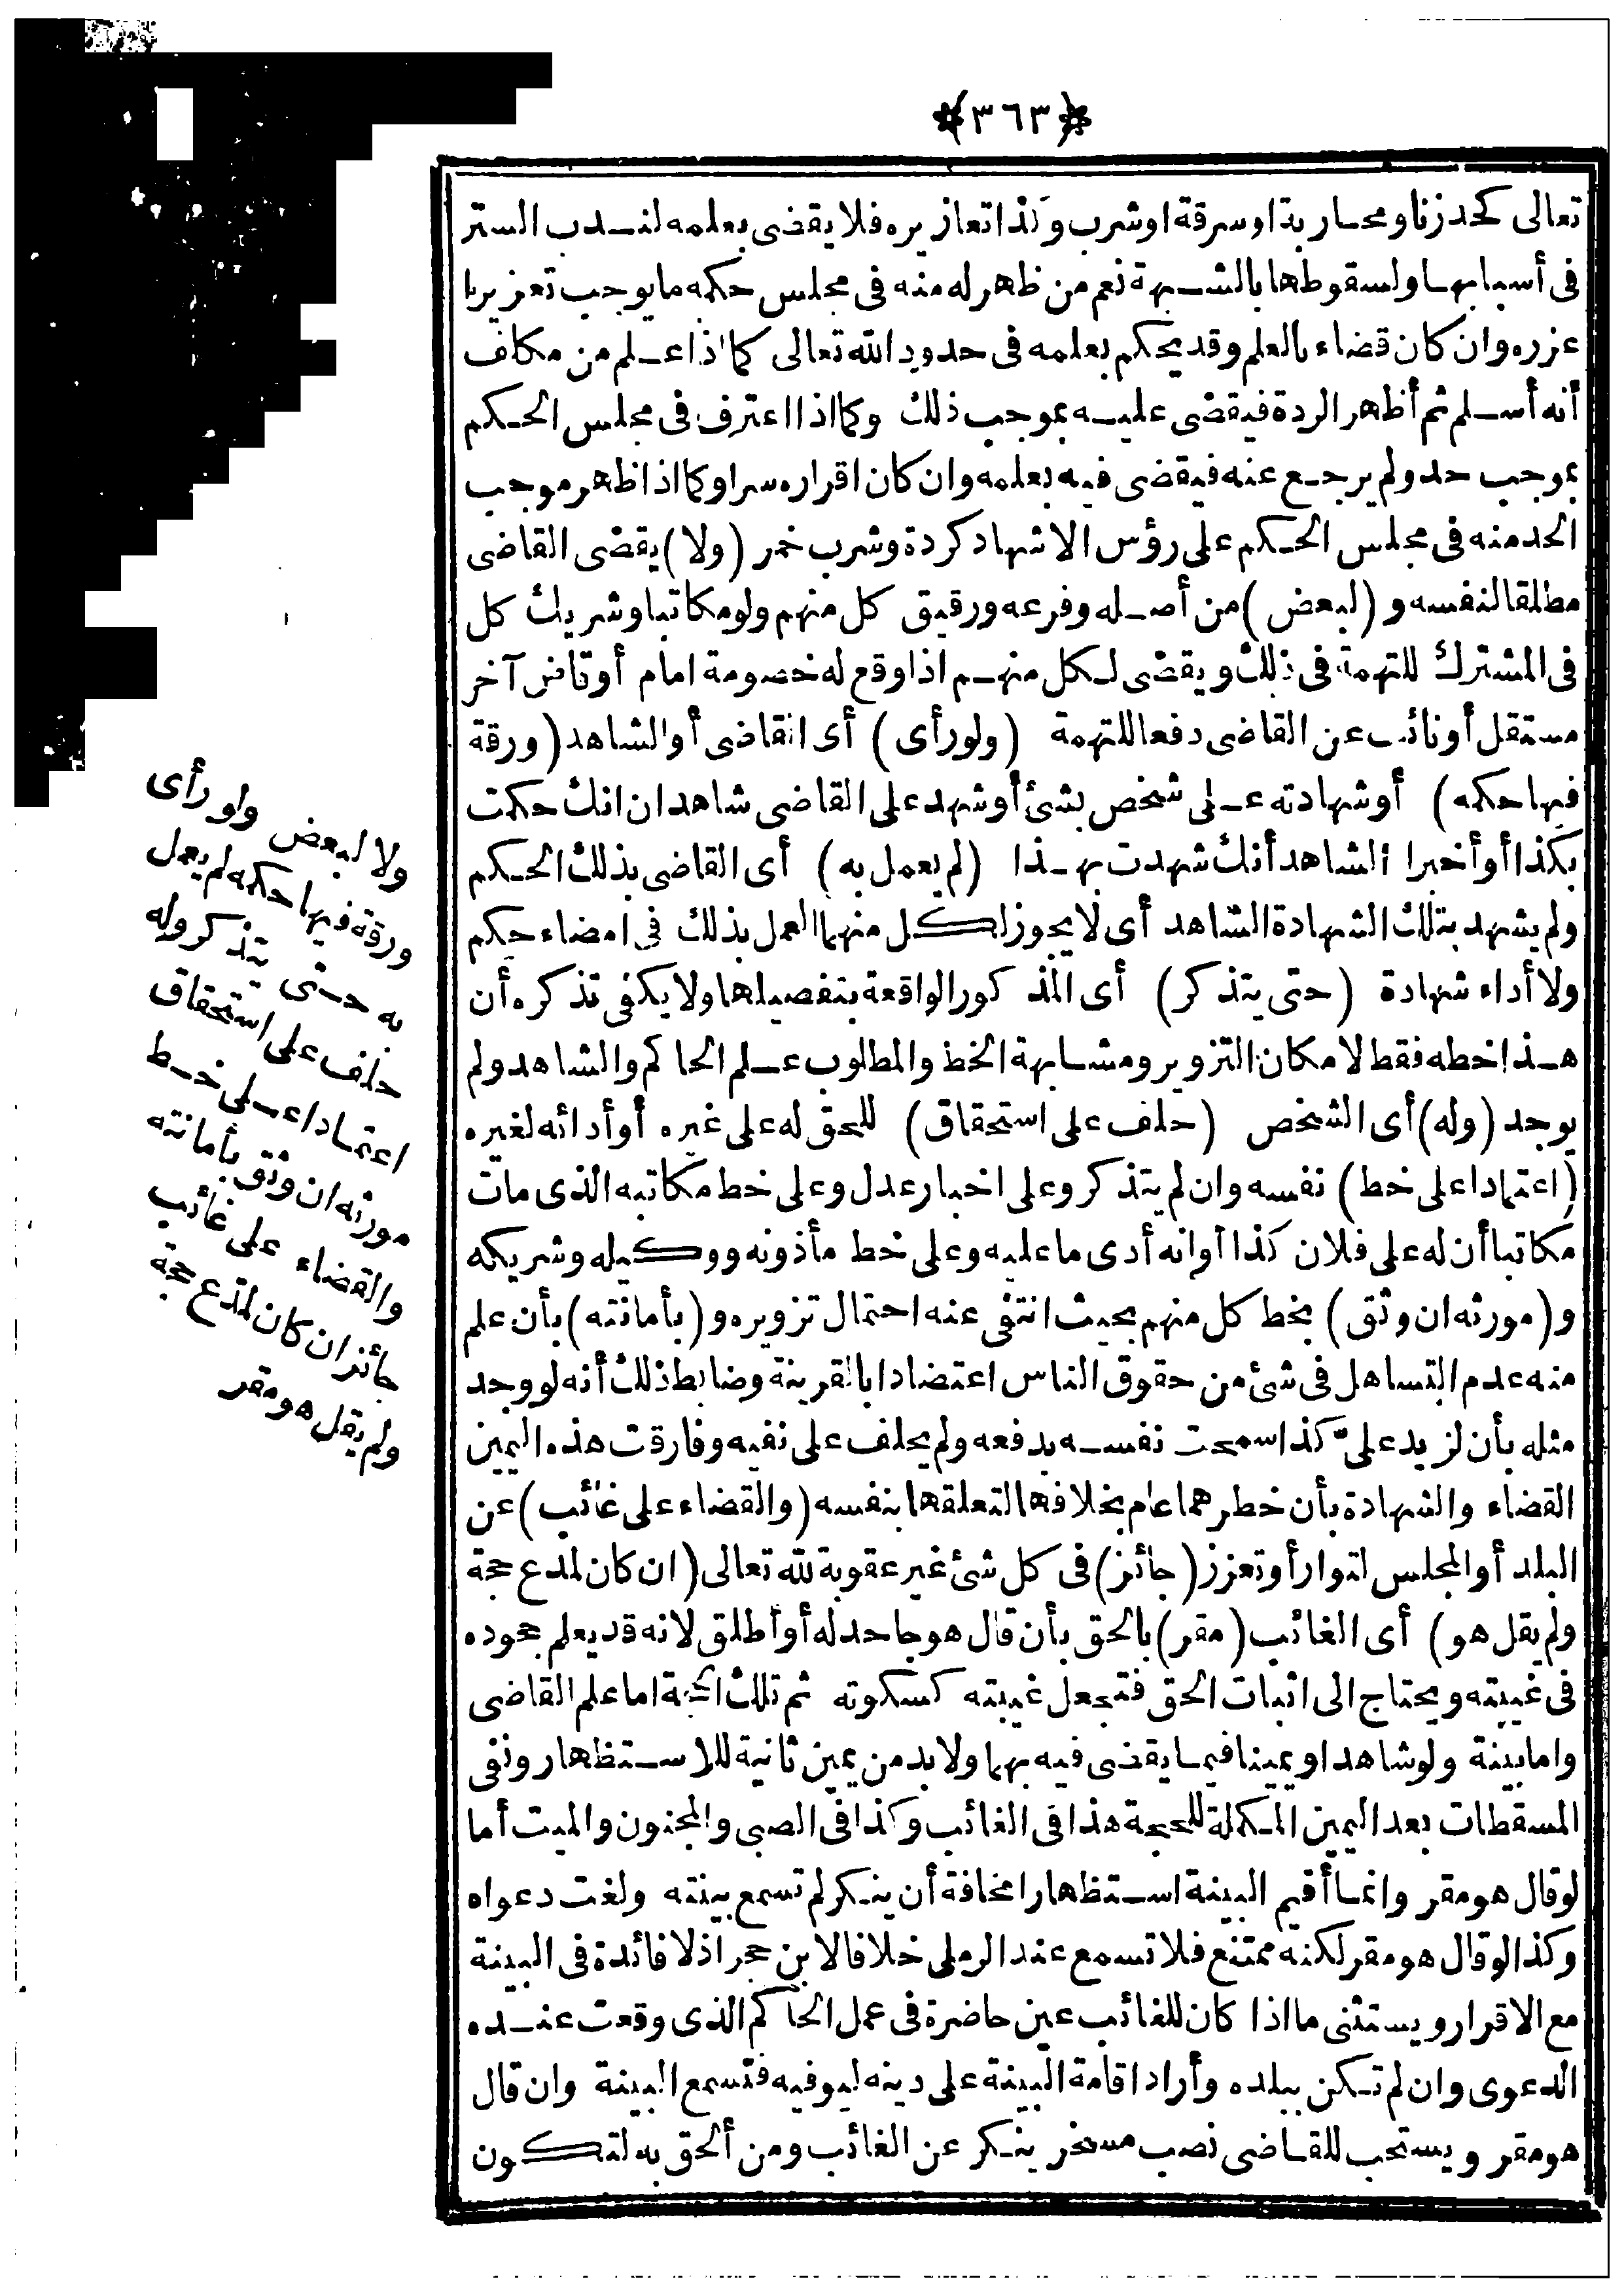 ﴿٣٦٣﴾
تعالى كحد زنا ومحاربة او سرقة او شرب وكذا تعازيره فلا يقضى بعلمه لندب الستر
فى أسبابها ولسقوطها بالشبهة نعم من ظهر له منه فى مجلس حكمه ما يوجب تعزيرا
عزره وان كان قضاء بالعلم وقد يحكم بعلمه فى حدود الله تعالى كما اذا علم من مكلف
أنه أسلم ثم أظهر الردة فيقضى عليه بموجب ذلك وكما اذا اعترف فى مجلس الحكم
بموجب حد ولم يرجع عنه فيقضى فيه بعلمه وان كان اقراره سرا وكما اذا ظهر موجب
الحد منه فى مجلس الحكم على رؤس الاشهاد كردة وشرب خمر (ولا) يقضى القاضى
مطلقا لنفسه و (لبعض) من أصله وفرعه ورقيق كل منهم ولو مكاتبا وشريك كل
فى المشترك للتهمة فى ذلك ويقضى لكل منهم اذا وقع له خصومة امام أو قاض آخر
مستقل أو نائب عن القاضى دفعا للتهمة (ولو رأى) أى القاضى أو الشاهد (ورقة
فيها حكمه) أو شهادته على شخص بشئ أو شهد على القاضى شاهدان انك حكمت
بكذا أو أخبرا الشاهد أنك شهدت بهذا (لم يعمل به) أى القاضى بذلك الحكم
ولم يشهد بتلك الشهادة الشاهد أى لا يجوز لكل منهما العمل بذلك فى امضاء حكم
ولا أداء شهادة (حتى يتذكر) أى المذكور الواقعة بتفصيلها ولا يكفى تذكره أن
هذا خطه فقط لامكان التزوير ومشابهة الخط والمطلوب علم الحاكم والشاهد ولم
يوجد (وله) أى الشخص (حلف على استحقاق) للحق له على غيره أو أدائه لغيره
(اعتمادا على خط) نفسه وان لم يتذكر وعلى اخبار عدل وعلى خط مكاتبه الذى مات
مكاتبا أن له على فلان كذا أو انه أدى ما عليه وعلى خط مأذونه ووكيله وشريكه
و (مورثه ان وثق) بخط كل منهم بحيث انتفى عنه احتمال تزويره و (بأمانته) بأن علم
منه عدم التساهل فى شئ من حقوق الناس اعتضادا بالقرينة وضابط ذلك أنه لو وجد
مثله بأن لزيد علىّ كذا سمحت نفسه بدفعه ولم يحلف على نفيه وفارقت هذه اليمين
القضاء والشهادة بأن خطرهما عام بخلافها لتعلقها بنفسه (والقضاء على غائب) عن
البلد أو المجلس لتوار أو تعزز (جائز) فى كل شئ غير عقوبة لله تعالى (ان كان لمدع حجة
ولم يقل هو) أى الغائب (مقر) بالحق بأن قال هو جاحد له أو أطلق لانه قد يعلم جحوده
فى غيبته ويحتاج الى اثبات الحق فتجعل غيبته كسكوته ثم تلك الحجة اما علم القاضى
واما بينة ولو شاهدا ويمينا فيما يقضى فيه بهما ولا بد من يمين ثانية للاستظهار ونفى
المسقطات بعد اليمين المكملة للحجة هذا فى الغائب وكذا فى الصبى والمجنون والميت أما
لو قال هو مقر وانما أقيم البينة استظهارا مخافة أن ينكر لم تسمع بينته ولغت دعواه
وكذا لو قال هو مقر لكنه ممتنع فلا تسمع عند الرملى خلافا لابن حجر اذ لا فائدة فى البينة
مع الاقرار ويستثنى ما اذا كان للغائب عين حاضرة فى عمل الحاكم الذى وقعت عنده
الدعوى وان لم تكن ببلده وأراد اقامة البينة على دينه ليوفيه فتسمع البينة وان قال
هو مقر ويستحب للقاضى نصب مسخر ينكر عن الغائب ومن ألحق به لتكون
ولا لبعض ولو رأى
ورقة فيها حكمه لم يعمل
به حتى يتذكر وله
حلف على استحقاق
اعتمادا على خط
مورثه ان وثق بأمانته
والقضاء على غائب
جائز ان كان لمدع حجة
ولم يقل هو مقر